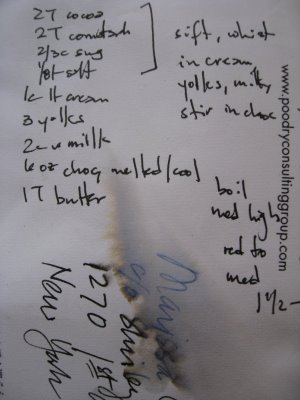 2T cocoa
2T cornstarch
2/3c sug
1/8t salt
1c lt cream
3 yolks
2c w milk
6 oz choc melted/cool
1T butter
sift, whisk
in cream,
yolks, milk,
stir in choc
boil
med high
red to
med
1½ -
www.poodryconsultinggroup.com
Marissa
c/o
1270
New York